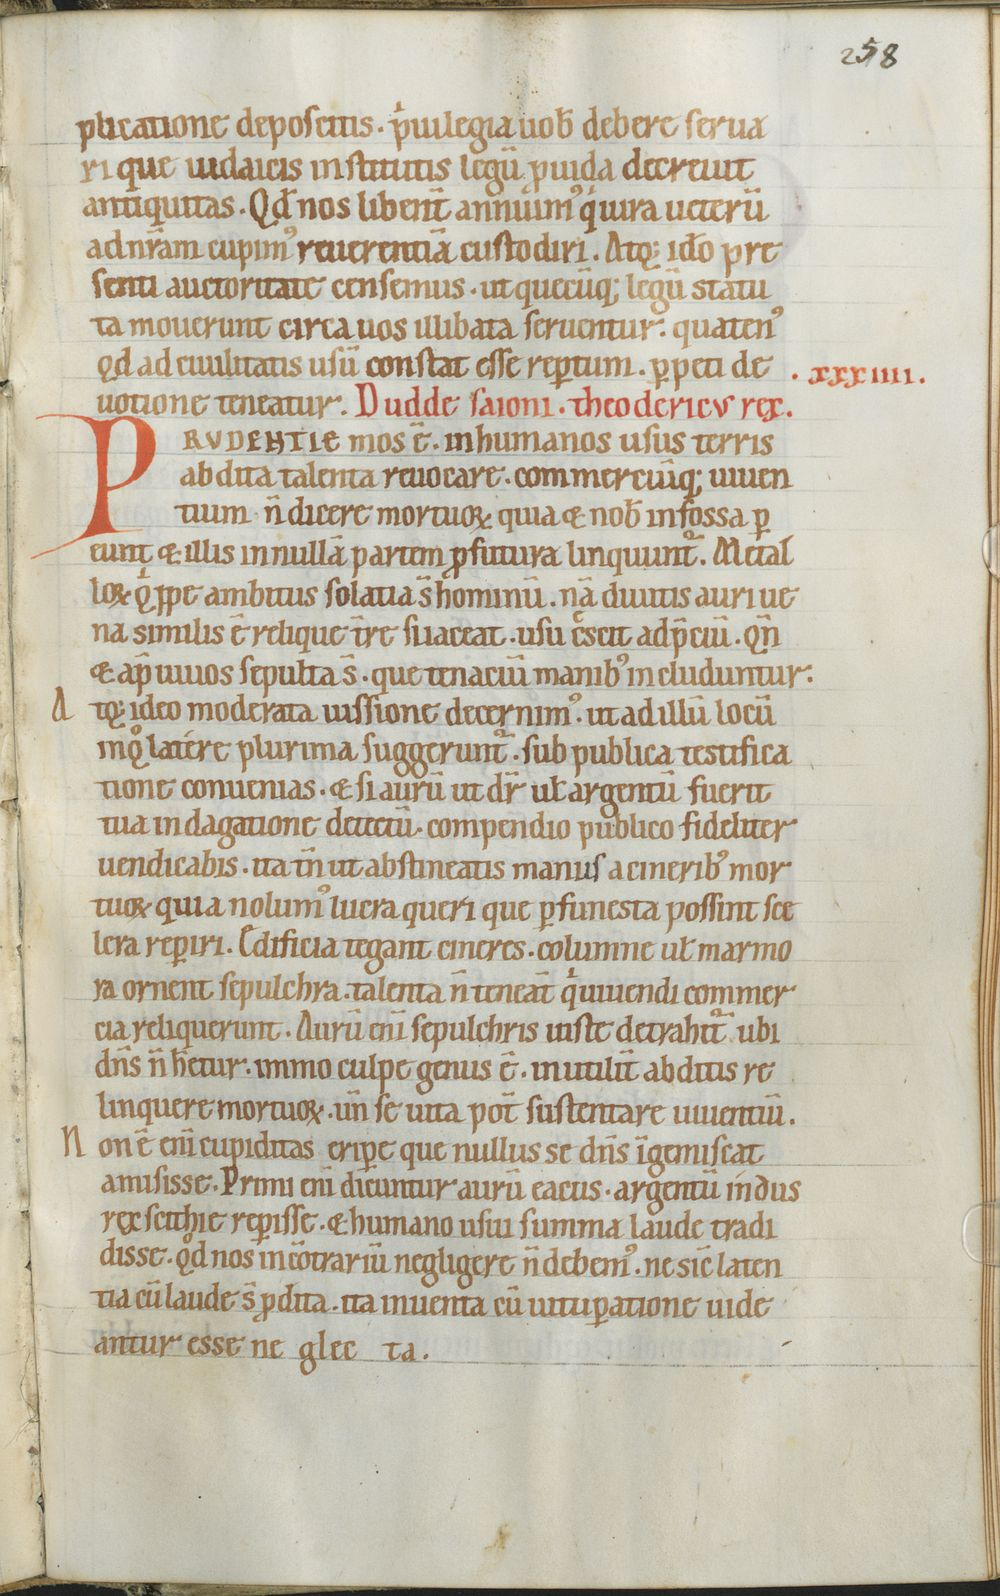 258
plicatione deposcitis. p̍uilegia uob̄ debere serua
ri que iudaicis institutis legū ꝓuida decreuit
antiquitas. Qd̄ nos libent̄ annuim᾽ q̍ iura ueterū
ad nr̄am cupim᾽ reuerentiā custodiri. Atq; id̄o pre
senti auctoritate censemus. ut quecūq; legū statu
ta mouerunt circa uos illibata seruentur. quaten᾽
qd ad ciuilitatis usū constat esse rep̄tum. ꝑpeti de
uotione teneatur. Dudde saioni. theodericus rex.
.xxxiiii.
PRUDENTIE mos ē. in humanos usus terris
abdita talenta reuocare. commerciūq; uiuen
tium n̄ dicere mortuoꝝ quia & nob̄ infossa ꝑ
eunt & illis in nullā partem ꝓfutura linquunt᷑. Metal
loꝝ q̍ppe ambitus solatia s̄ hominū. nā diuitis auri ue
na similis ē relique tr̄e si iaceat. usu c̄scit ad p̄ciū. Qn̄
& ap̄ uiuos sepulta s̄. que tenaciū manib᾽ includuntur.
Atq; ideo moderata iussione decernim᾽. ut ad illū locū
in q̊ latere plurima suggerunt᷑. sub publica testifica
tione conuenias. & si aurū ut dr̄ ul̄ argentū fuerit
tua indagatione detectū. compendio publico fideliter
uendicabis. ita tn̄ ut abstineatis manus a cinerib᾽ mor
tuoꝝ quia nolum᾽ lucra queri que ꝑ funesta possint sce
lera reꝑiri. Edificia tegant cineres. columne ul̄ marmo
ra ornent sepulchra. talenta n̄ teneāt q̍ uiuendi commer
cia reliquerunt. Aurū eni̅ sepulchris iuste detrahit᷑ ubi
dn̄s n̄ hētur. immo culpe genus ē. inutilit̄ abditis re
linquere mortuoꝝ. un̄ se uita pot̄ sustentare uiuentiū.
Non ē eni̅ cupiditas eriꝑe que nullus se dn̄s īgemiscat
amisisse. Primi eni̅ dicuntur aurū eacus. argentū indus
rex scithie reꝑisse. & humano usui summa laude tradi
disse. qd̊ nos in c̄otrariū negligere n̄ debem᾽. ne sic̄ laten
tia cū laude s̄ ꝓdita. ita inuenta cū uituꝑatione uide
antur esse neglecta.